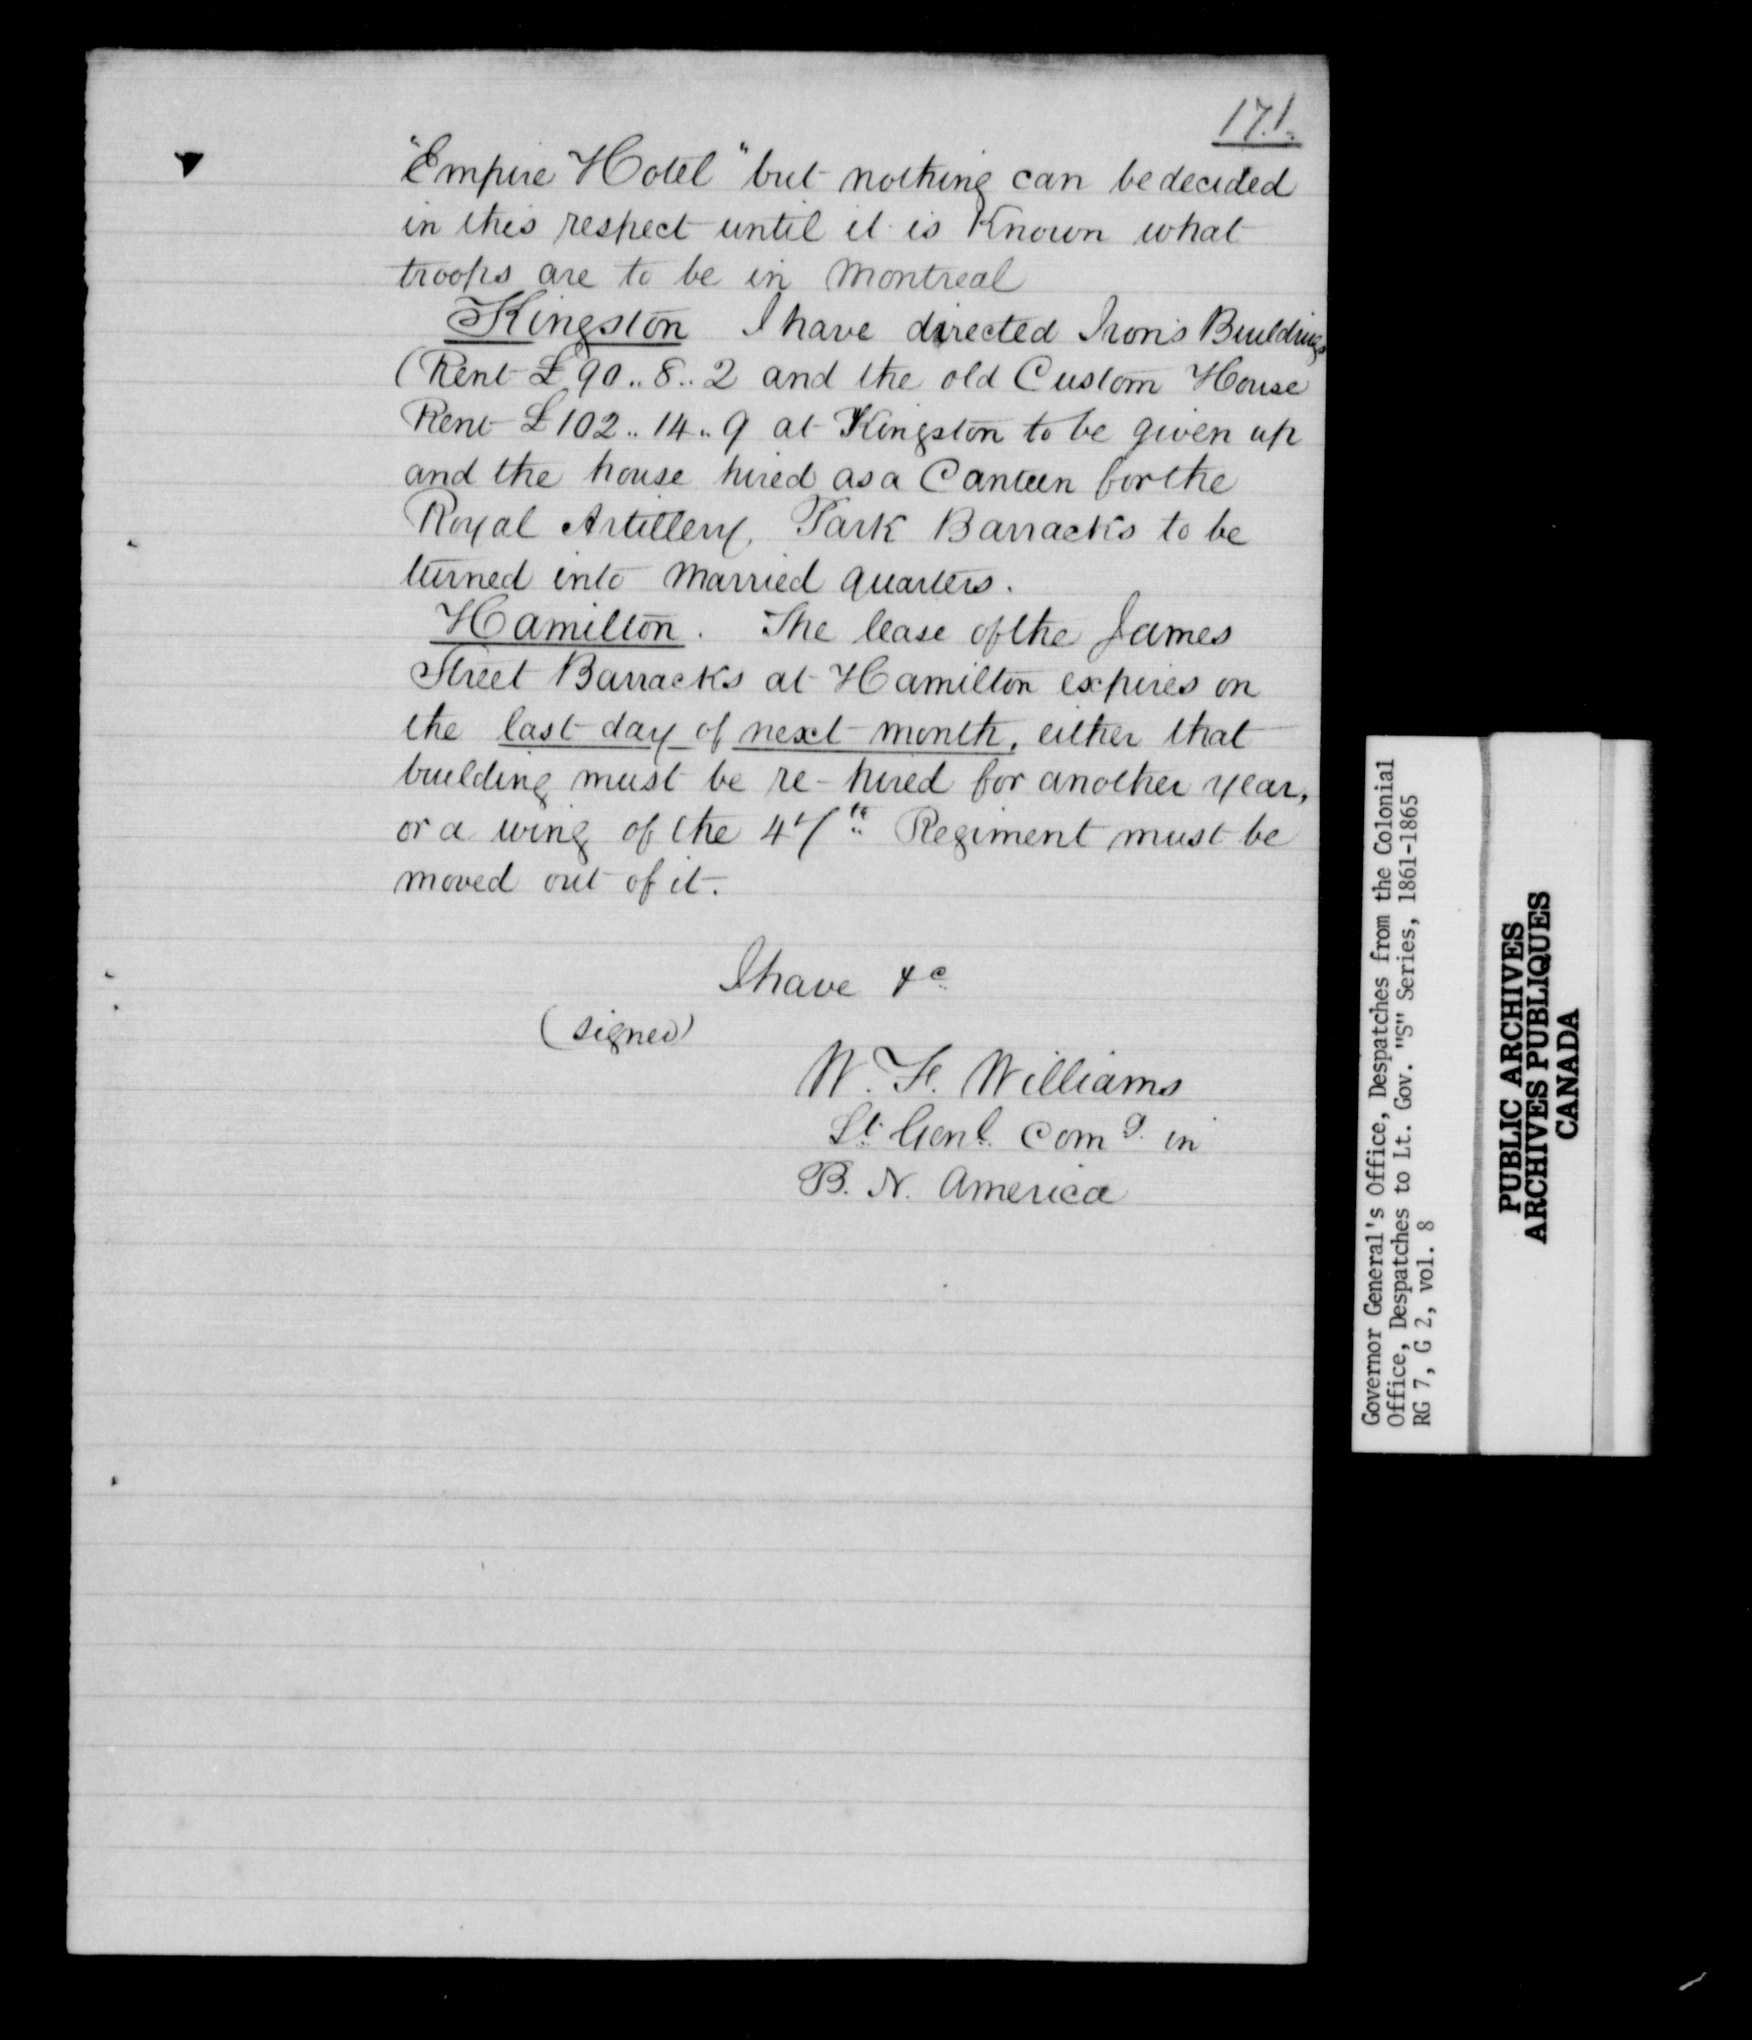 171.
"Empire Hotel" but nothing can be decided
in this respect until it is Known what
troops are to be in Montreal
Kingston I have directed Iron's Buildings
(Rent £90..8..2 and the old Custom House
Rent £102..14..9 at Kingston to be given up
and the house hired as a Canteen for the
Royal Artillery, Park Barracks to be
turned into Married quarters.
Hamilton. The lease of the James
Street Barracks at Hamilton expires on
the last day of next month, either that
building must be re-hired for another year,
or a wing of the 47th Regiment must be
moved out of it.
I have &c
(signed)
W. F. Williams
Lt. Genl. Comg. in
B. N. America
Governor General's Office, Despatches from the Colonial
Office, Despatches to Lt. Gov. "S" Series, 1861-1865
RG 7, G 2, vol. 8
PUBLIC ARCHIVES
ARCHIVES PUBLIQUES
CANADA